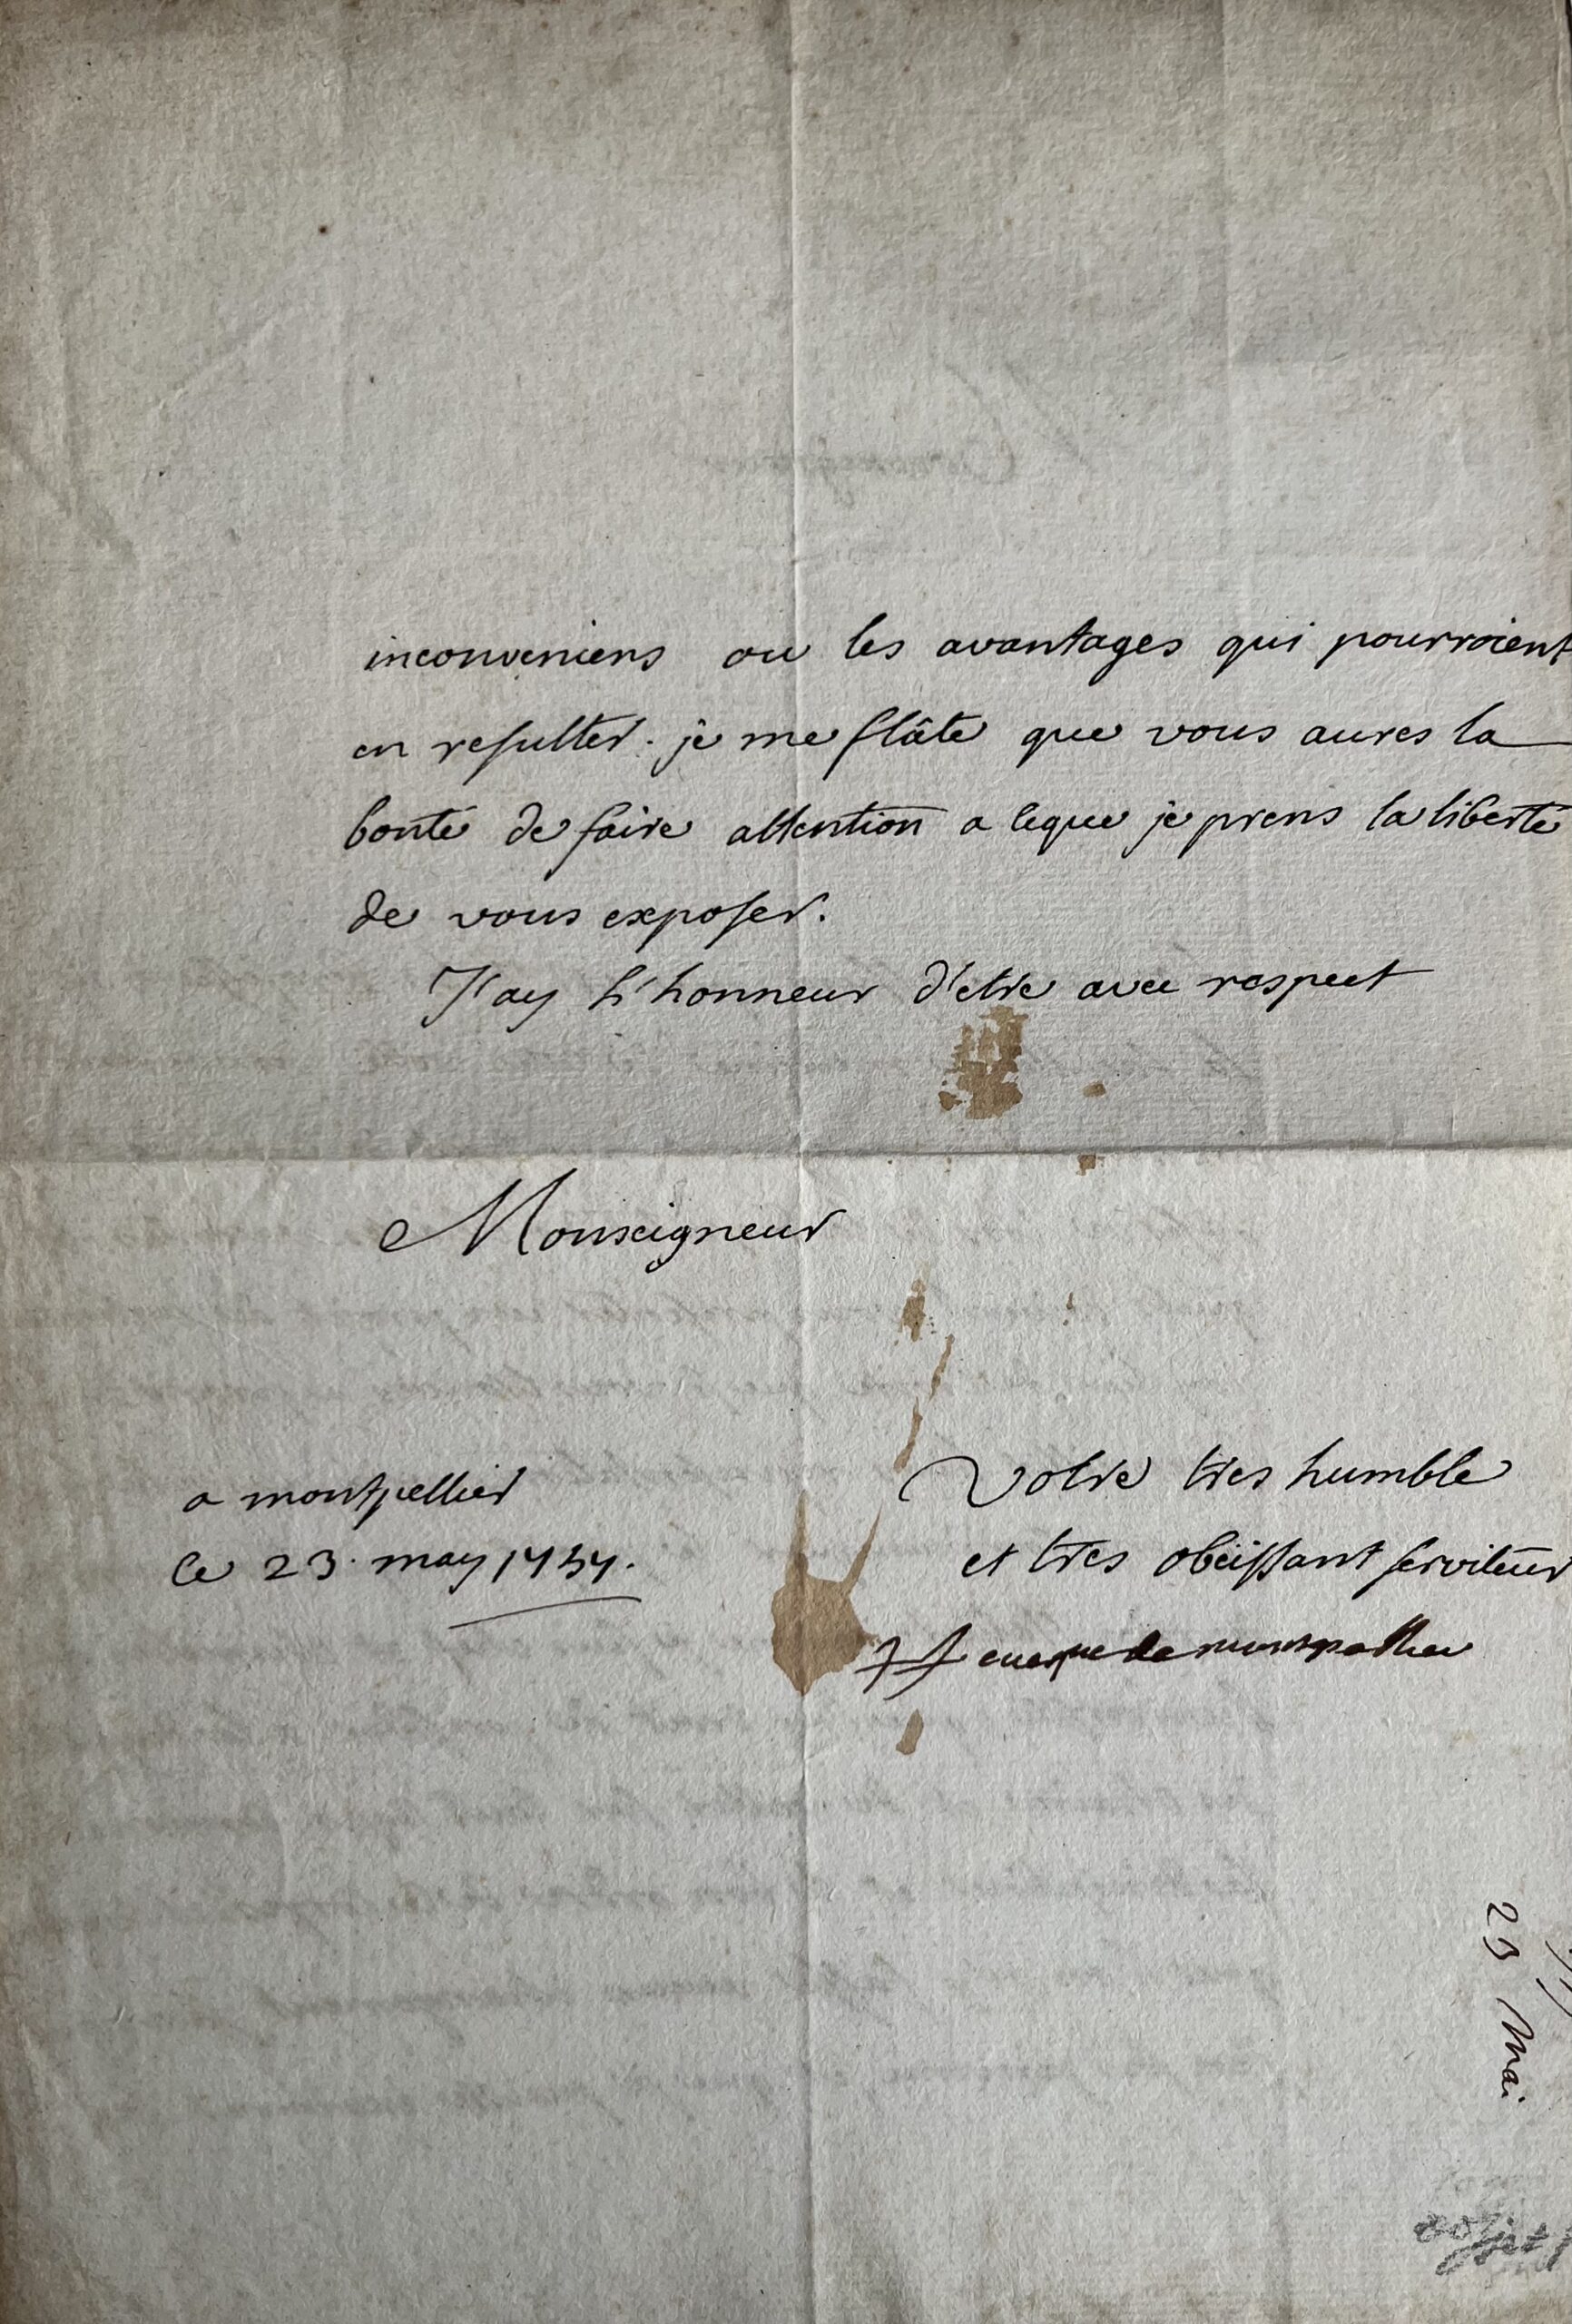 inconveniens ou les avantages qui pourroient
en resulter. je me flâte que vous aures la
bonté de faire attention a ceque je prens la liberté
de vous exposer.
J'ay l'honneur d'etre avec respect
Monseigneur
a montpellier
ce 23. may 1757.
Votre tres humble
et tres obeissant serviteur
eveque de montpellier
23 Mai